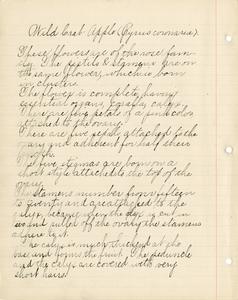 Wild Crab Apple (Pyrus coronaria).
These flowers are of the rose fam-
ily. The petals & stamens are on
the same flower, which is born
in clusters.
The flower is complete, having
essential organs, corolla, calyx.
There are five petals of a pink color
attached to the ovary.
There are five sepals attached to the
ovary and adherent for half their
length.
Five stigmas are born on a
short style attached to the top of the
ovary.
The stamens number from fifteen
to twenty and are attached to the
calyx, because when the calyx is cut in
two and pulled off the ovary the stamens
adhere to it.
The calyx is much thickened at the
base and forms the fruit. The peduncle
and the calyx are covered with very
short hairs.